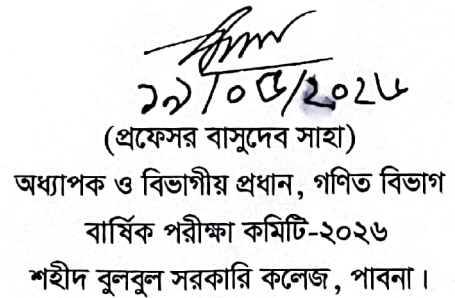 ১৯/০৫/২০২৬
(প্রফেসর বাসুদেব সাহা)
অধ্যাপক ও বিভাগীয় প্রধান, গণিত বিভাগ
বার্ষিক পরীক্ষা কমিটি-২০২৬
শহীদ বুলবুল সরকারি কলেজ, পাবনা।